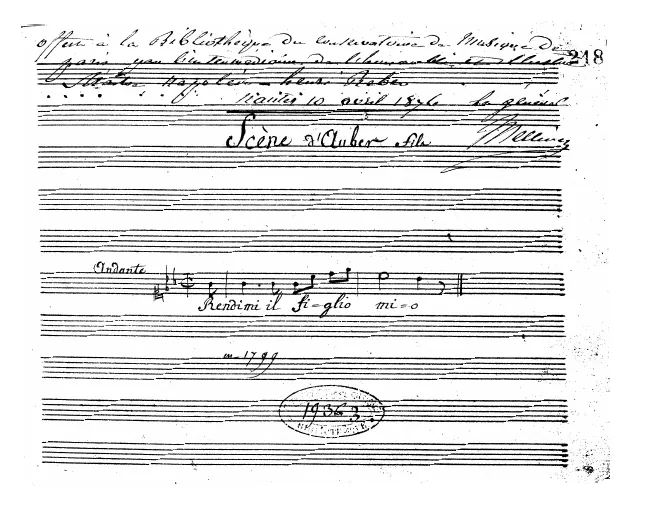 offert à la Bibliothèque du conservatoire de Musique de
paris par l'intermédiaire de l'honorable et illustre
218
Maître Napoléon - henri Reber
Nantes 10 avril 1876 Le général
Scène d'Auber fils Mellinet
Andante
Rendimi il fi=glio mi=o
m-1799
19363